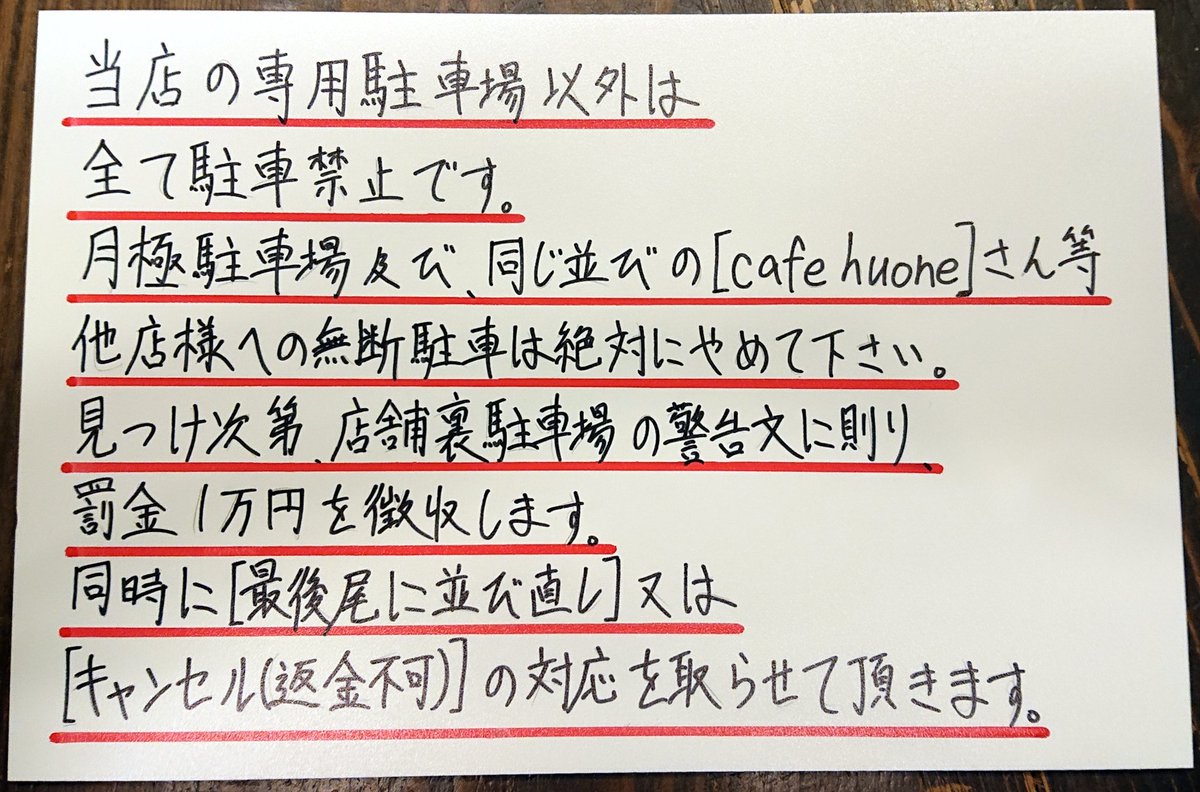 当店の専用駐車場以外は
全て駐車禁止です。
月極駐車場及び、同じ並びの[cafe huone]さん等
他店様への無断駐車は絶対にやめて下さい。
見つけ次第、店舗裏駐車場の警告文に則り、
罰金1万円を徴収します。
同時に[最後尾に並び直し]又は
[キャンセル(返金不可)]の対応を取らせて頂きます。